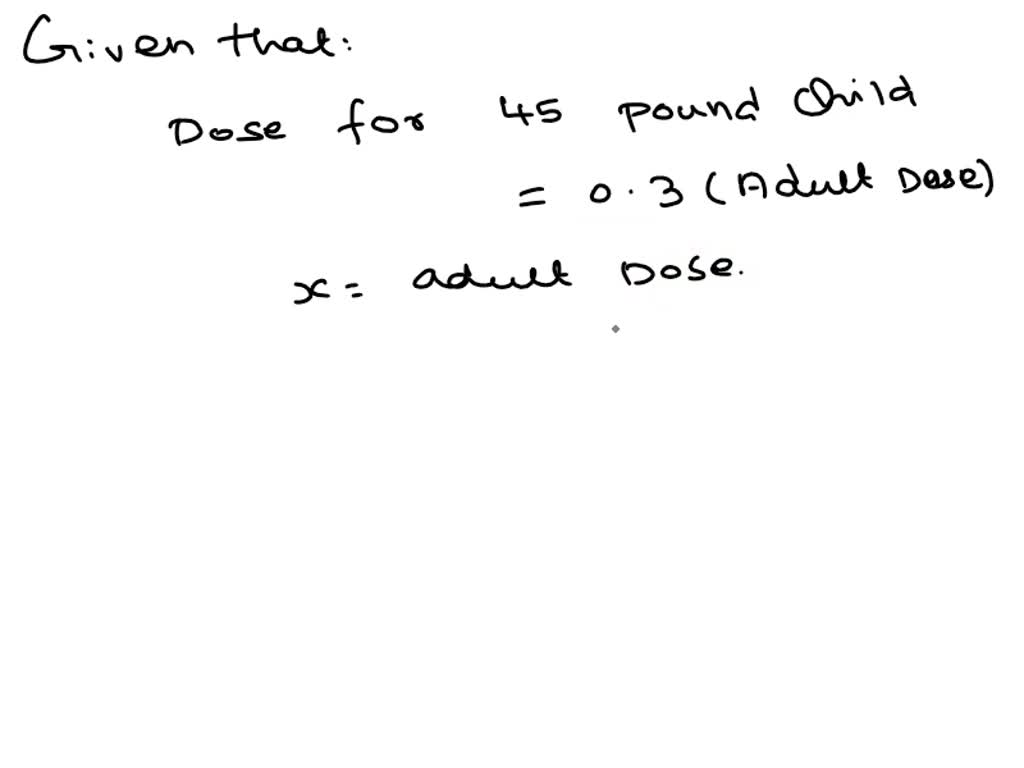 Given that:
Dose for 45 pound child
= 0.3 (Adult Dose)
x = adult Dose.